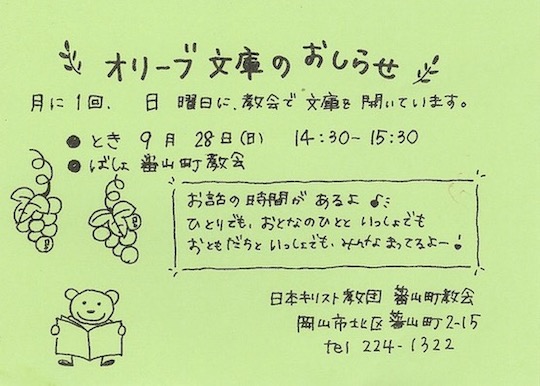 オリーブ文庫のおしらせ
月に1回、日曜日に、教会で文庫を開いています。
●とき 9月 28日(日) 14:30~15:30
●ばしょ 蕃山町教会
お話の時間が あるよ♪
ひとりでも、おとなのひとと いっしょでも
おともだちと いっしょでも、みんなまってるよー!
日本キリスト教団 蕃山町教会
岡山市北区蕃山町2-15
tel 224-1322